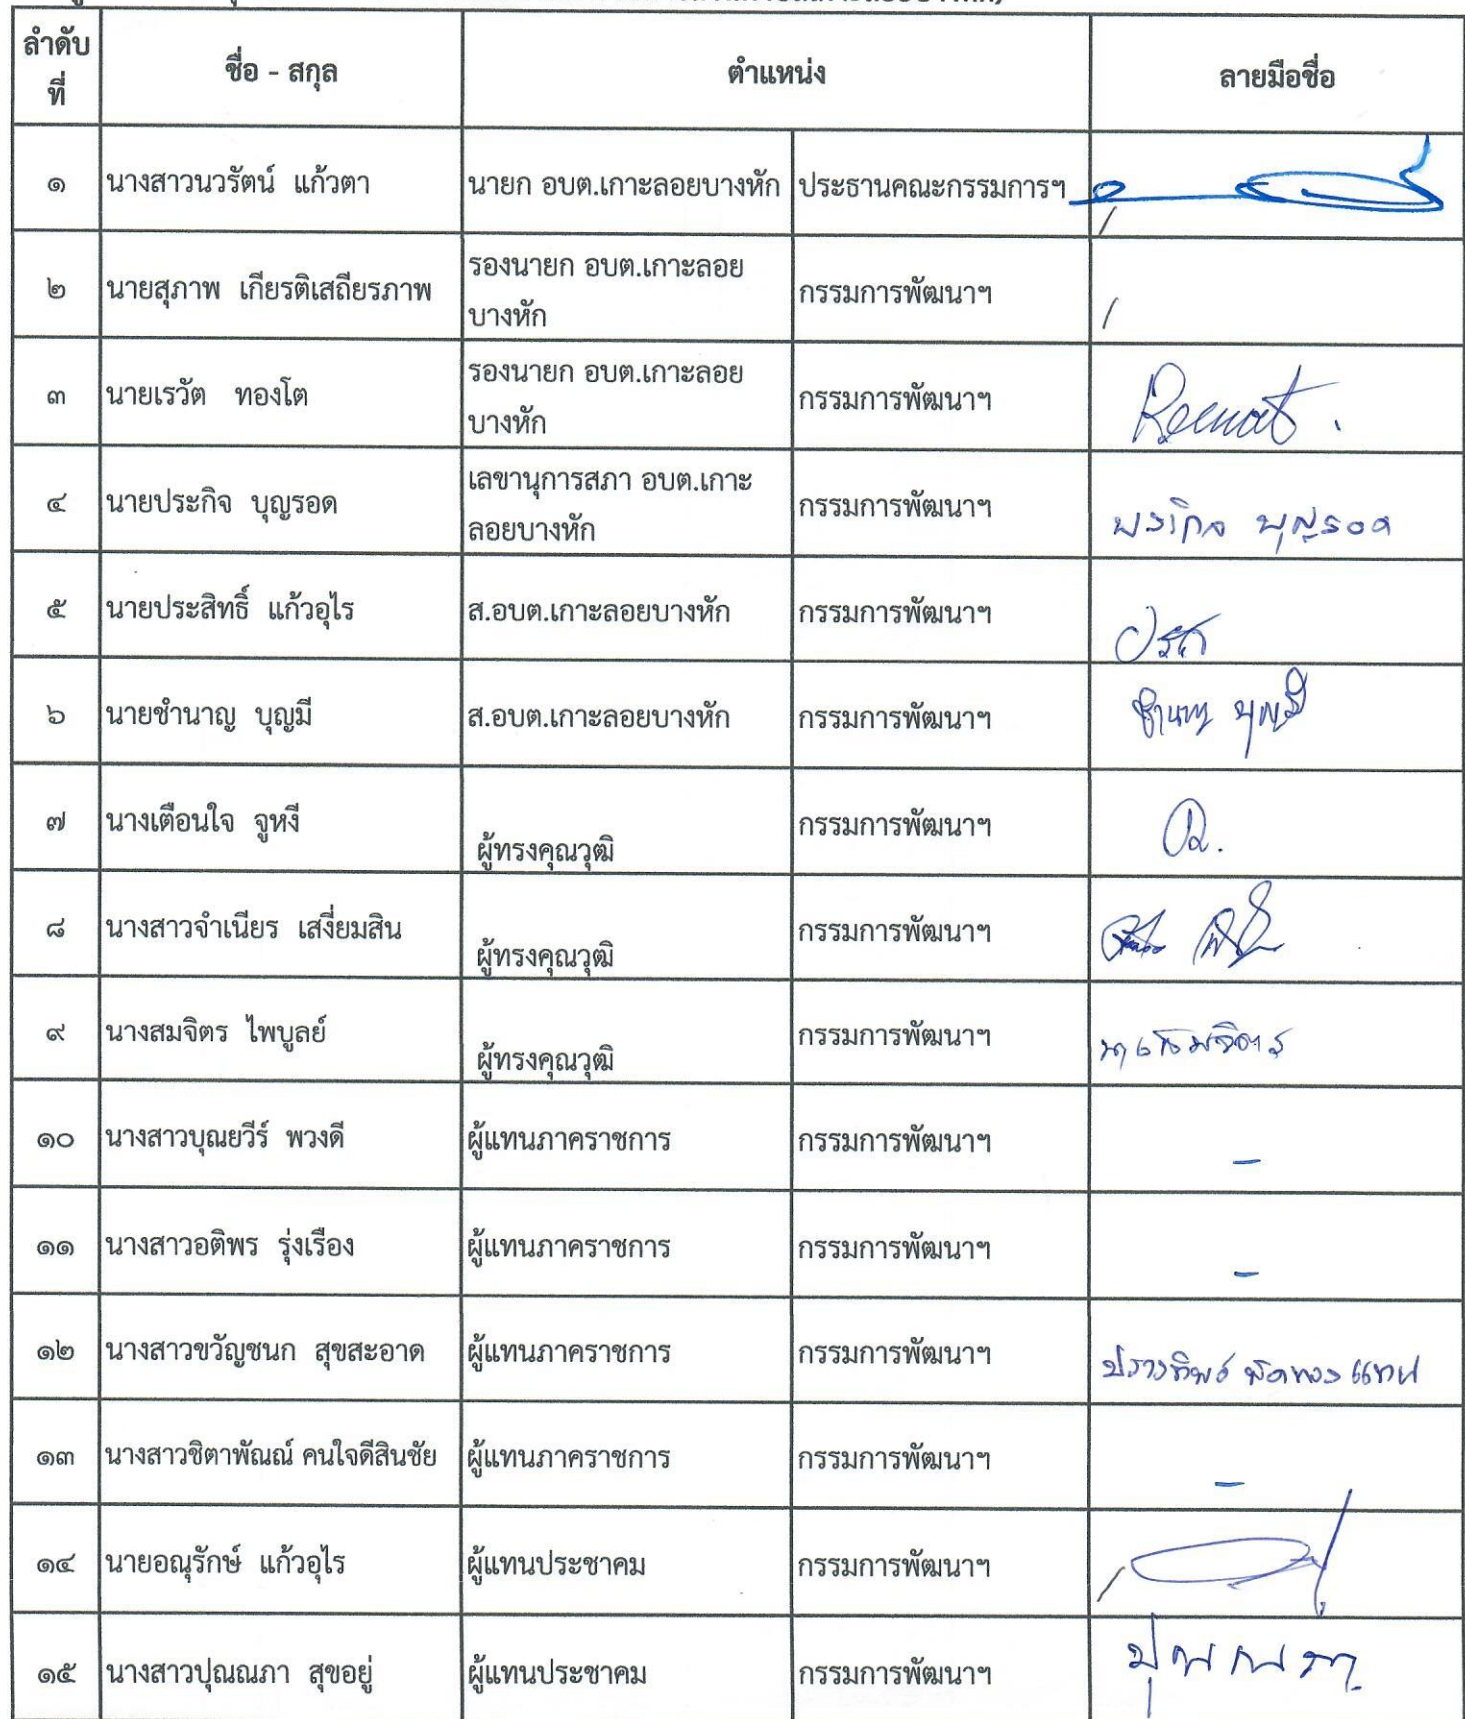 ลำดับ
ที่
ชื่อ - สกุล
ตำแหน่ง
ลายมือชื่อ
๑ นางสาวนวรัตน์ แก้วตา นายก อบต.เกาะลอยบางหัก ประธานคณะกรรมการฯ
๒ นายสุภาพ เกียรติเสถียรภาพ รองนายก อบต.เกาะลอย
บางหัก กรรมการพัฒนาฯ
๓ นายเรวัต ทองโต รองนายก อบต.เกาะลอย
บางหัก กรรมการพัฒนาฯ
๔ นายประกิจ บุญรอด เลขานุการสภา อบต.เกาะ
ลอยบางหัก กรรมการพัฒนาฯ ประกิจ บุญรอด
๕ นายประสิทธิ์ แก้วอุไร ส.อบต.เกาะลอยบางหัก กรรมการพัฒนาฯ
๖ นายชำนาญ บุญมี ส.อบต.เกาะลอยบางหัก กรรมการพัฒนาฯ ชำนาญ บุญมี
๗ นางเตือนใจ จูหงี ผู้ทรงคุณวุฒิ กรรมการพัฒนาฯ
๘ นางสาวจำเนียร เสงี่ยมสิน ผู้ทรงคุณวุฒิ กรรมการพัฒนาฯ
๙ นางสมจิตร ไพบูลย์ ผู้ทรงคุณวุฒิ กรรมการพัฒนาฯ นางสมจิตร
๑๐ นางสาวบุณยวีร์ พวงดี ผู้แทนภาคราชการ กรรมการพัฒนาฯ -
๑๑ นางสาวอติพร รุ่งเรือง ผู้แทนภาคราชการ กรรมการพัฒนาฯ -
๑๒ นางสาวขวัญชนก สุขสะอาด ผู้แทนภาคราชการ กรรมการพัฒนาฯ ปรางทิพย์ แทน
๑๓ นางสาวชิตาพัณณ์ คนใจดีสินชัย ผู้แทนภาคราชการ กรรมการพัฒนาฯ -
๑๔ นายอณุรักษ์ แก้วอุไร ผู้แทนประชาคม กรรมการพัฒนาฯ
๑๕ นางสาวปุณณภา สุขอยู่ ผู้แทนประชาคม กรรมการพัฒนาฯ ปุณณภา